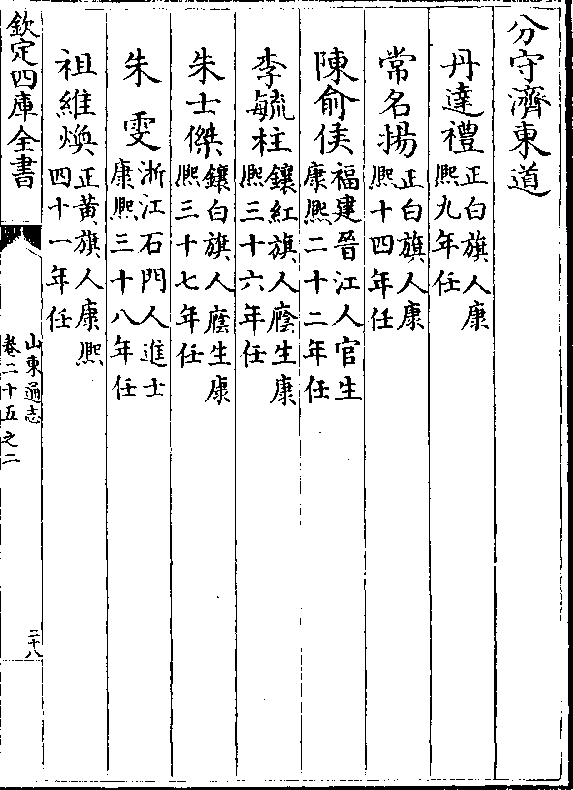 分守濟東道
丹達禮正白旗人康熙九年任
常名揚正白旗人康熙十四年任
陳俞侯福建晉江人官生康熙二十二年任
李毓柱鑲紅旗人廕生康熙三十六年任
朱士傑鑲白旗人廕生康熙三十七年任
朱雯浙江石門人進士康熙三十八年任
祖維煥正黃旗人康熙四十一年任
欽定四庫全書
山東通志
卷二十五之二
二十八